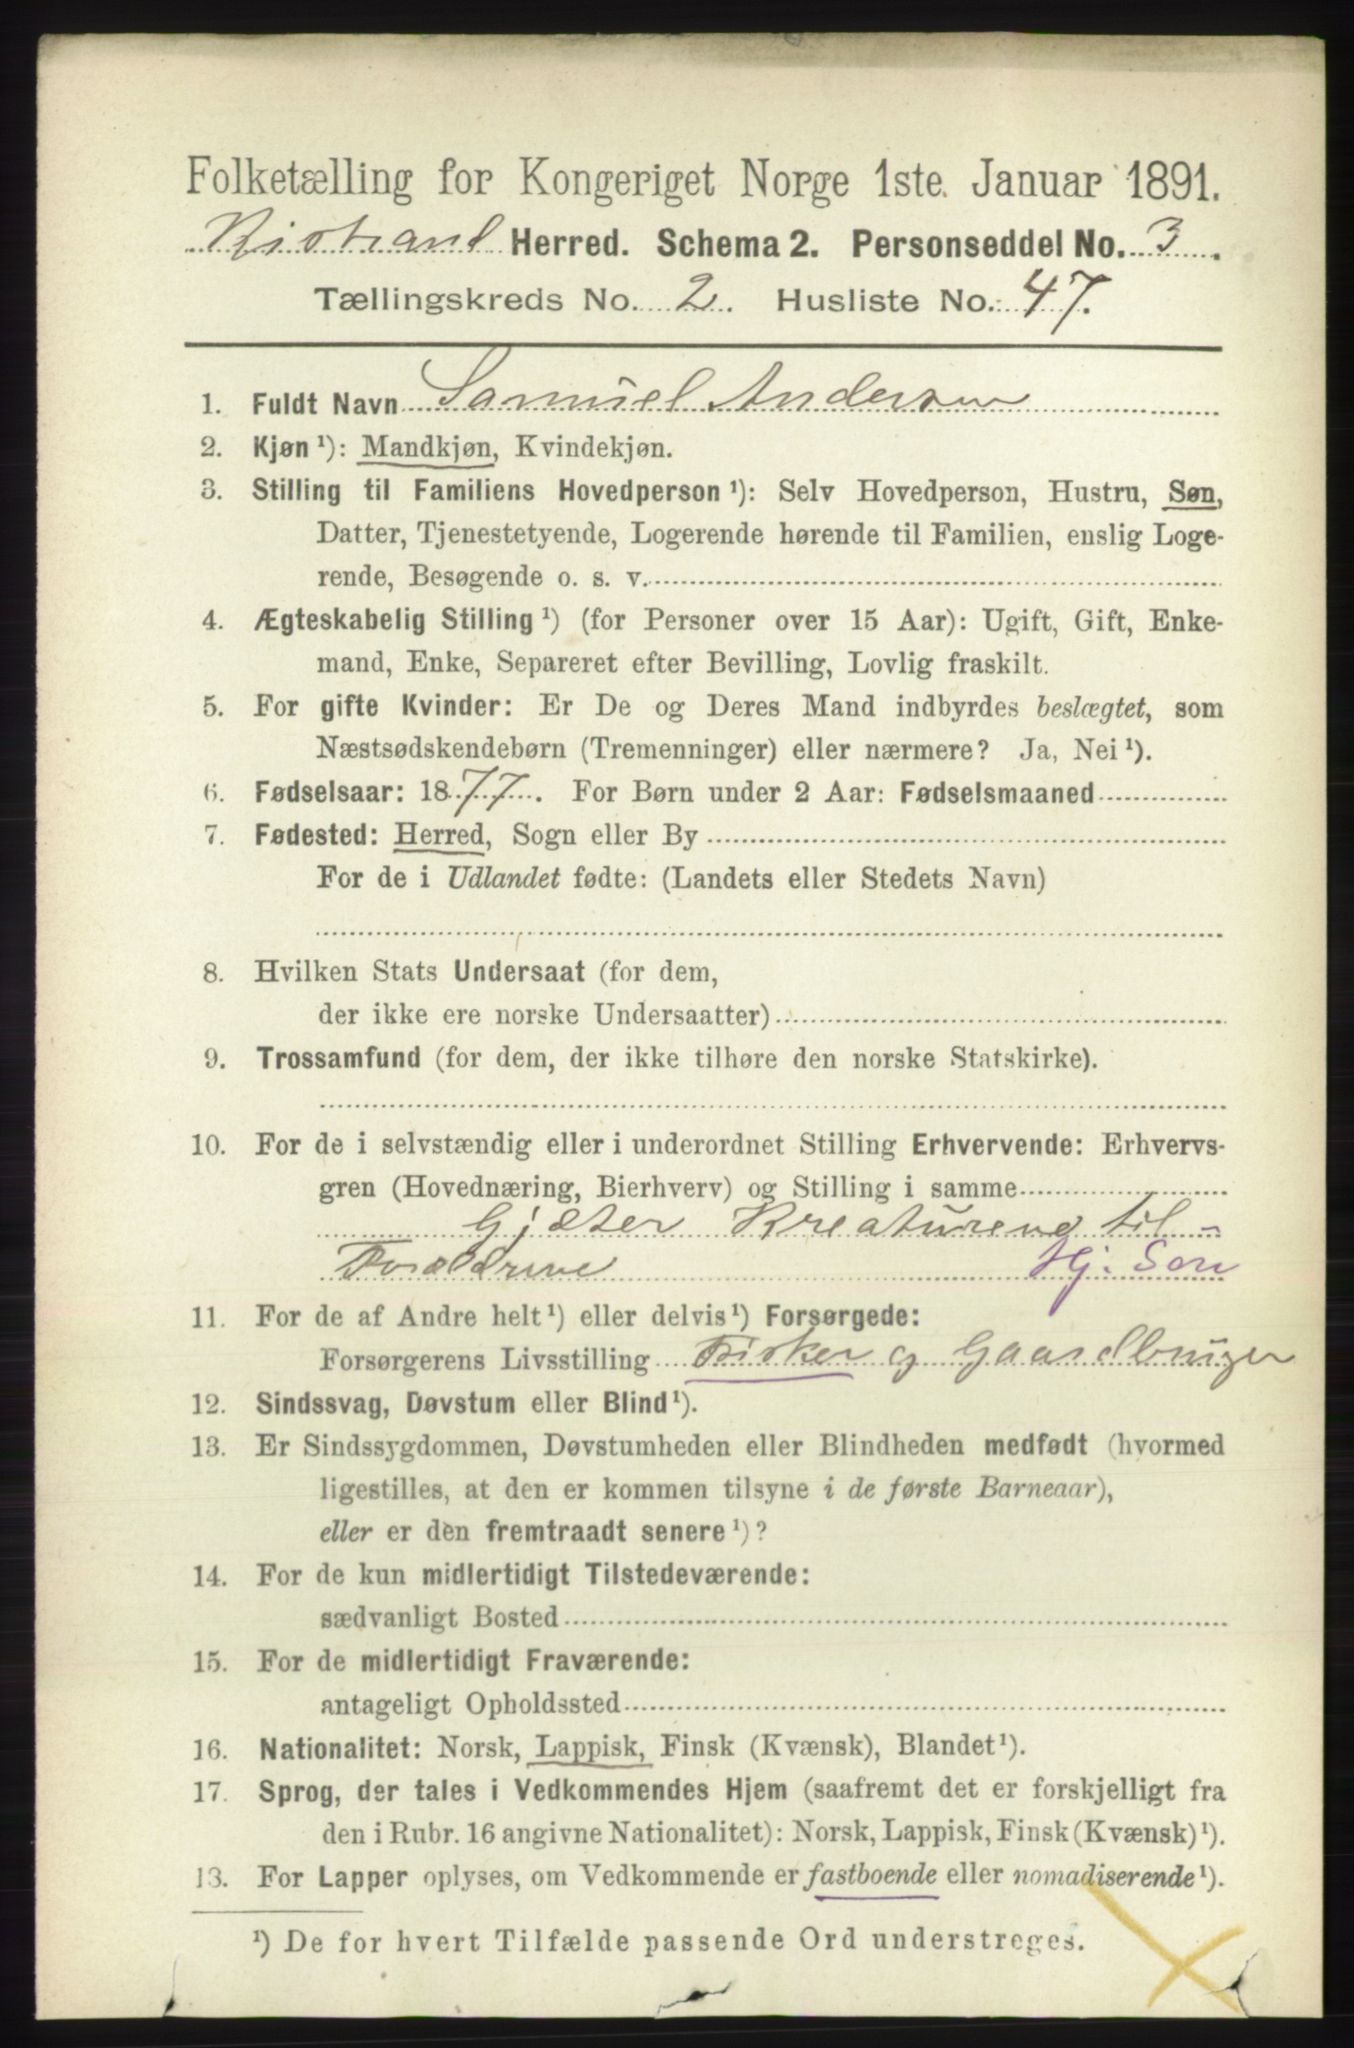 Folketælling for Kongeriget Norge 1ste. Januar 1891.
Kistrand Herred. Schema 2. Personseddel No. 3.
Tællingskreds No. 2. Husliste No. 47.
1. Fuldt Navn Samuel Andersen
2. Kjøn ¹): Mandkjøn, Kvindekjøn.
3. Stilling til Familiens Hovedperson ¹): Selv Hovedperson, Hustru, Søn,
Datter, Tjenestetyende, Logerende hørende til Familien, enslig Loge-
rende, Besøgende o. s. v.
4. Ægteskabelig Stilling ¹) (for Personer over 15 Aar): Ugift, Gift, Enke-
mand, Enke, Separeret efter Bevilling, Lovlig fraskilt.
5. For gifte Kvinder: Er De og Deres Mand indbyrdes beslægtet, som
Næstsødskendebørn (Tremenninger) eller nærmere? Ja, Nei ¹).
6. Fødselsaar: 1877. For Børn under 2 Aar: Fødselsmaaned
7. Fødested: Herred, Sogn eller By
For de i Udlandet fødte: (Landets eller Stedets Navn)
8. Hvilken Stats Undersaat (for dem,
der ikke ere norske Undersaatter)
9. Trossamfund (for dem, der ikke tilhøre den norske Statskirke).
10. For de i selvstændig eller i underordnet Stilling Erhvervende: Erhvervs-
gren (Hovednæring, Bierhverv) og Stilling i samme
Gjæter Kreaturene til
Forældrene Hj. Søn
11. For de af Andre helt ¹) eller delvis ¹) Forsørgede:
Forsørgerens Livsstilling Fisker og Gaardbruger
12. Sindssvag, Døvstum eller Blind ¹).
13. Er Sindssygdommen, Døvstumheden eller Blindheden medfødt (hvormed
ligestilles, at den er kommen tilsyne i de første Barneaar),
eller er den fremtraadt senere ¹)?
14. For de kun midlertidigt Tilstedeværende:
sædvanligt Bosted
15. For de midlertidigt Fraværende:
antageligt Opholdssted
16. Nationalitet: Norsk, Lappisk, Finsk (Kvænsk), Blandet ¹).
17. Sprog, der tales i Vedkommendes Hjem (saafremt det er forskjelligt fra
den i Rubr. 16 angivne Nationalitet): Norsk, Lappisk, Finsk (Kvænsk) ¹).
13. For Lapper oplyses, om Vedkommende er fastboende eller nomadiserende ¹).
¹) De for hvert Tilfælde passende Ord understreges.